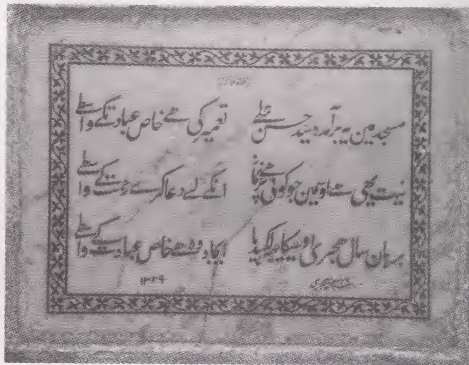 مسجد مین یہ برآمدہ سید حسن علی تعمیر کی ہے خاص عبادت کے واسطے
نیت یہی ہے اومین جو کوئی پڑھے نماز انکے لیے دعا کرے رحمت کے واسطے
برہان سال ہجری اوسکا یہ لکھ یا ایجاد وہ ہے خاص عبادت کے واسطے
۱۳۲۹